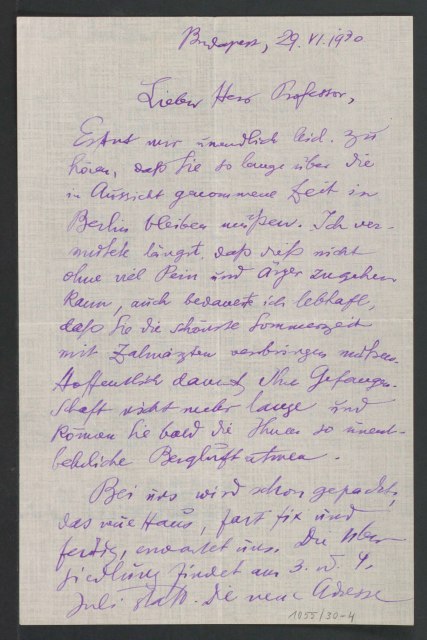 Budapest, 29. VI. 1930
Lieber Herr Professor,
Es tut mir unendlich leid, zu
hören, daß Sie so lange über die
in Aussicht genommene Zeit in
Berlin bleiben müßen. Ich ver-
mutete längst, daß dieß nicht
ohne viel Pein und Ärger zugehen
kann, auch bedauerte ich lebhaft,
daß Sie die schönste Sommerzeit
mit Zahnärzten verbringen müßen.
Hoffentlich dauert Ihre Gefangen-
schaft nicht mehr lange und
können Sie bald die Ihnen so unent-
behrliche Bergluft atmen.
Bei uns wird schon gepackt,
das neue Haus, fast fix und
fertig, erwartet uns. Die Über-
siedlung findet am 3. u. 4.
Juli statt. Die neue Adresse
1055/30-4